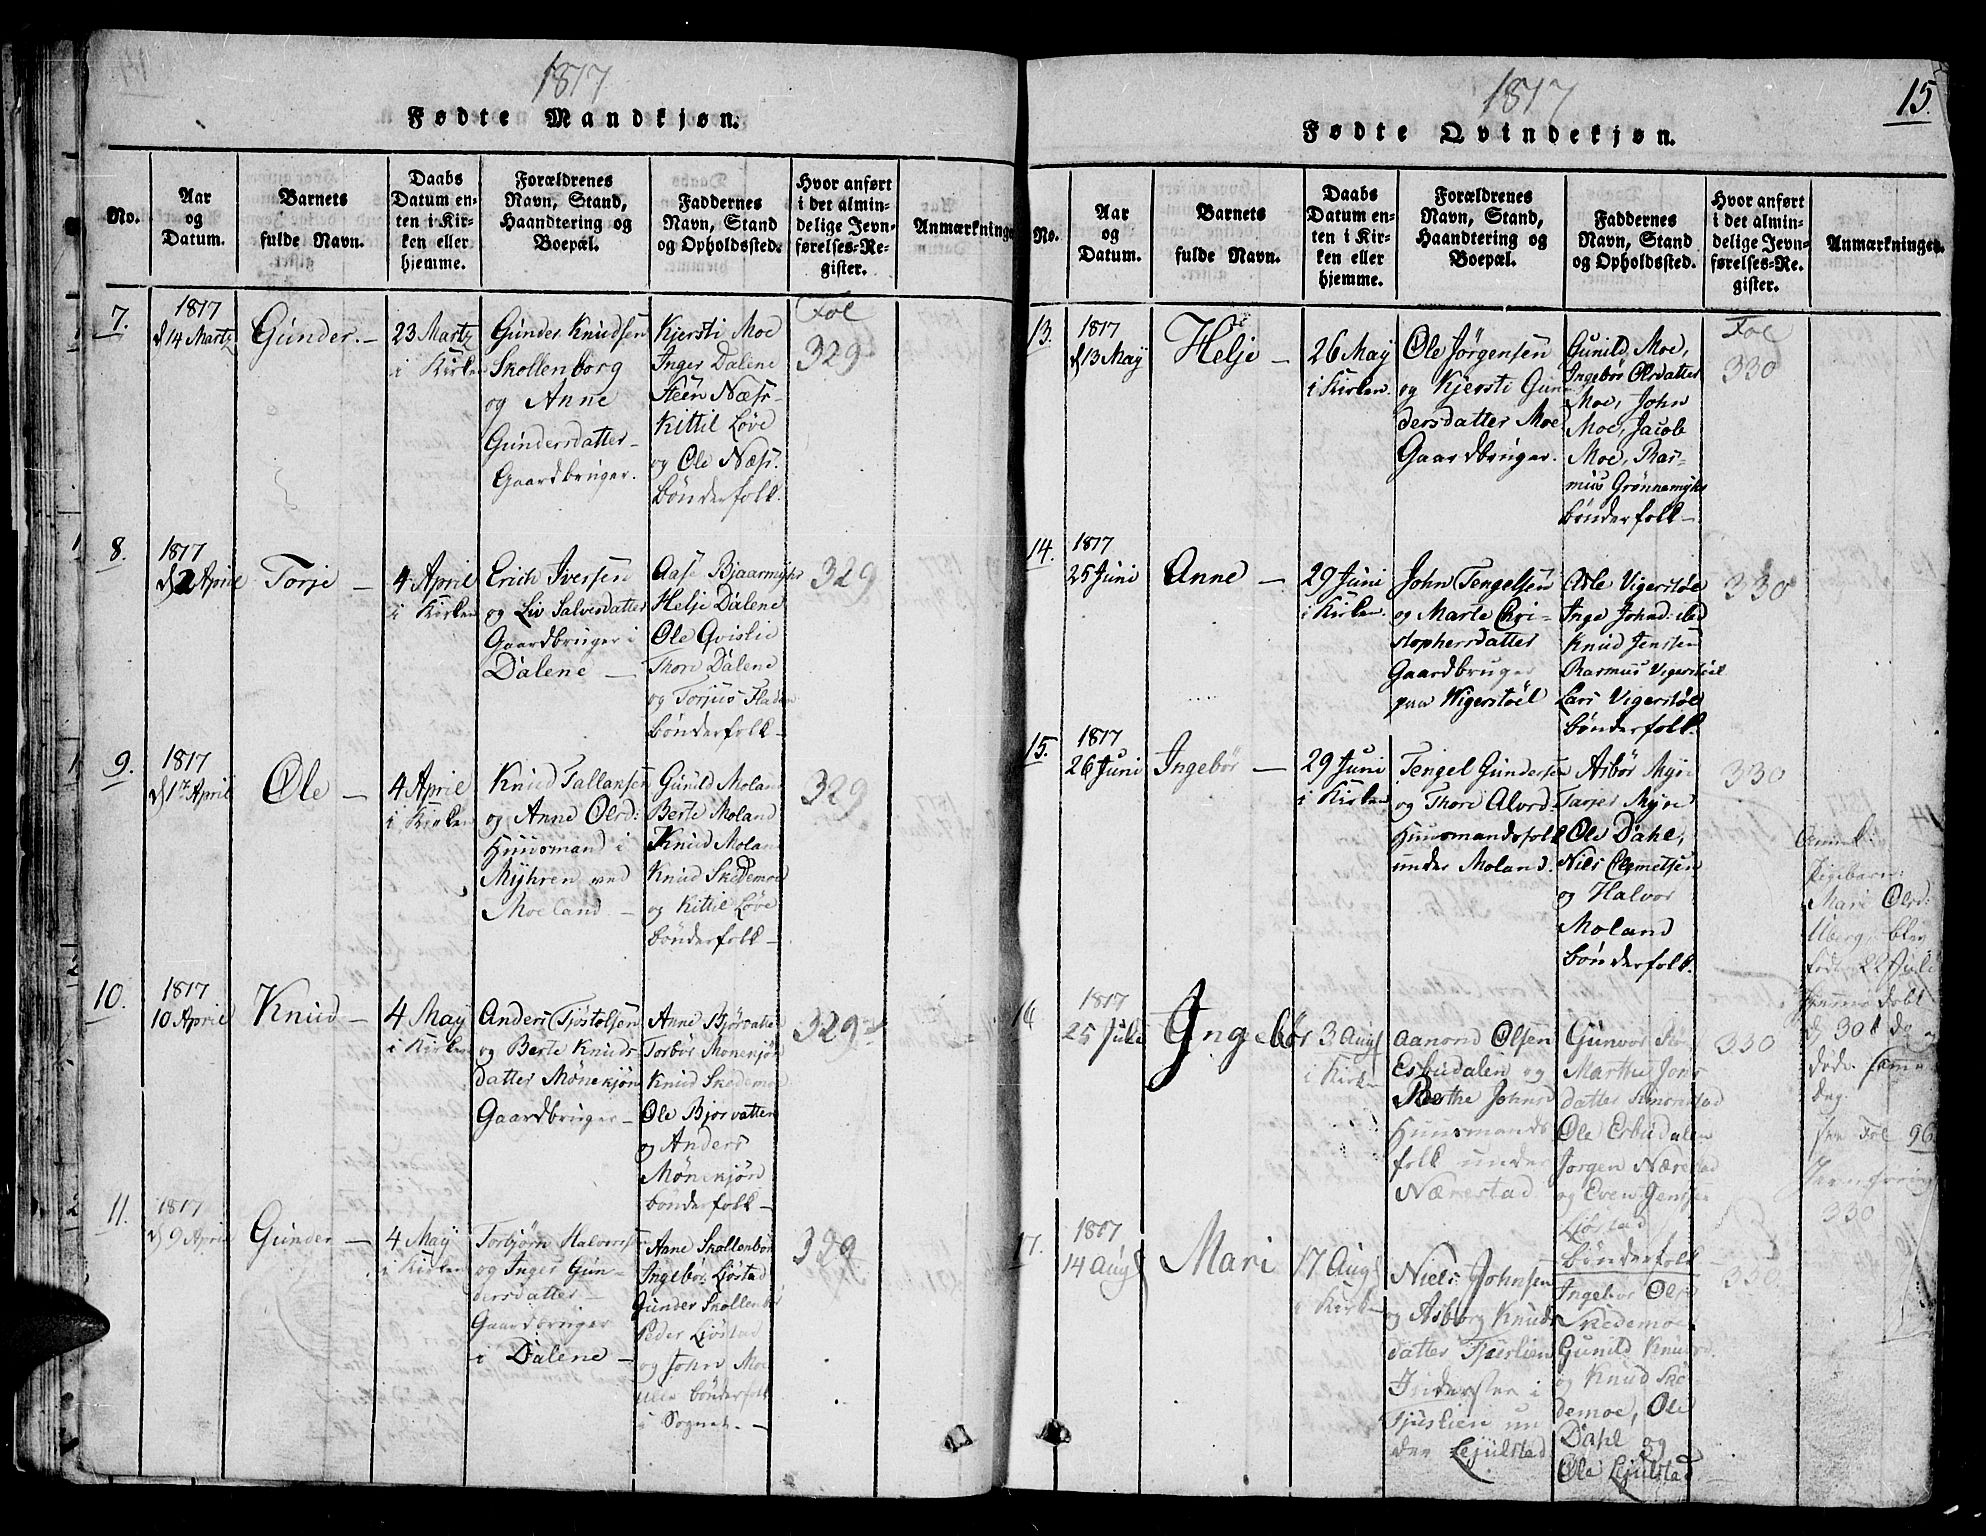 1817
Fødte Mandkjøn.
No.
Aar
og
Datum.
Barnets
fulde Navn.
Daabs
Datum en-
ten i Kir-
ken eller
hjemme.
Forældrenes
Navn, Stand,
Haandtering og
Boepæl.
Faddernes
Navn, Stand
og Opholdssted.
Hvor anført
i det almin-
delige Jevn-
førelses-Re-
gister.
Anmærkninge
7.
1817
d 14 Martz
Gunder. –
23 Martz
i Kirken
Gunder Knudsen
Skollenborg
og Anne
Gundersdatter –
Gaardbruger.
Kjersti Moe
Inger Dalene
Steen Næss.
Kittil Løve
og Ole Næss.
bønderfolk.
Fol
329
8.
1817
d 2 April
Torje –
4 April
i Kirken
Erich Iversen
og Liv Salvesdatter
Gaardbruger i
Dalene –
Aase Bjaarmyhr
Helje Dalene
Ole Qvislie
Thore Dalene
og Torjus Fladen
bønderfolk –
329
9.
1817
d 1st April
Ole –
4 April
i Kirken
Knud Tallaksen
og Anne Olsd:
Huusmand i
Myhren ved
Moeland –
Gunild Moland
Berte Moland
Knud Moland
Knud Skedemoe
og Kittil Løve
bønderfolk –
329
10.
1817
10 April
Knud –
4 May
i Kirken
Anders Tjøstolsen
og Berte Knuds-
datter Mønekjøn
Gaardbruger –
Anne Bjørvatten
Torbør Monekjøn
Knud Skedemoe
Ole Bjorvatten
og Anders
Mønekjøn
bønderfolk –
329
11.
1817
d 9 April
Gunder –
4 May
i Kirken
Torbjørn Halvorsen
og Inger Gun-
dersdatter –
Gaardbruger
i Dalene –
Anne Skollenbor
Ingebør Ljøstad
Gunder Skollenbor
Peder Ljøstad
og John Moe
alle bønderfolk
i Sognet. –
329
1817
15.
Fødte Qvindekjøn.
No.
Aar
og
Datum.
Barnets
fulde Navn.
Daabs
Datum en-
ten i Kir-
ken eller
hjemme.
Forældrenes
Navn, Stand,
Haandtering og
Boepæl.
Faddernes
Navn, Stand
og Opholdssted.
Hvor anført
i det almin-
delige Jevn-
førelses-Re-
gister.
Anmærkninger.
13.
1817
d 13 May
Helje –
26 May
i Kirken
Ole Jørgensen
og Kjersti Gun
dersdatter Moe
Gaardbruger.
Gunild Moe,
Ingebør Olsdatter
Moe, John
Moe, Jacob
Moe, Ras-
mus Grønnemyhr
bønderfolk –
Fol
330
14.
1817
25 Juni
Anne –
29 Juni
i Kirken
John Tengelsen
og Marte Chri-
stophersdatter
Gaardbruger
paa Wigerstøel
Asle Vigerstøl
Inge Johnd: ibd
Knud Jensen
Rasmus Vigerstøel
Lars Vigerstøl
bønderfolk.
330
15.
1817
26 Juni
Ingebør –
29 Juni
i Kirken
Tengel Gundersen
og Thore Alvord
Huusmandsfolk
under Moland.
Asbør Myre
Tarjer Myre
Ole Dahl,
Niels Clemetsen
og Halvor
Moland
bønderfolk.
330
16
1817
25 Juli
Ingebør
3 Aug
i Kirken
Aanond Olsen
Esbudalen og
Berthe Johnsd
Huusmands
folk under
Nærestad
Gunvor
Marthe Jons
datter
Ole Esbudalen
Jorgen Nærestad
og Even Jensen
Ljøstad
bønderfolk
330
17.
1817
14 Aug
Mari
17 Aug
i Kirken
Niels Johnsen
og Asborg Knuds
datter Tjuslien
Inderster i
Tjuslien un
der Lejulstad
Ingebør Olsd
Skedemoe
Gunild Knudsd.
og Knud Ske
demoe, Ole
Dahl
Ole Lejulstad
330.
39
Pigebarn:
Mari Olsd:
Uberg, blev
født 22 Juli
hiemmedøbt
d 30t do
døde samme
dag.
see Fol 96
Jevnføring
330